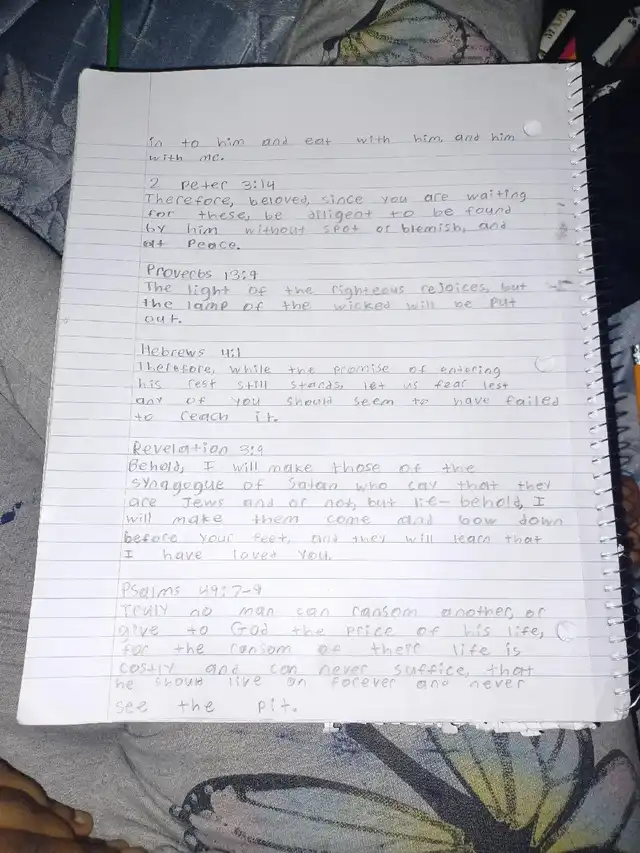 in to him and eat with him, and him
with me.
2 Peter 3:14
Therefore, beloved, since you are waiting
for these, be diligent to be found
by him without spot or blemish, and
at Peace.
Proverbs 13:9
The light of the righteous rejoices, but
the lamp of the wicked will be put
out.
Hebrews 4:1
Therefore, while the promise of entering
his rest still stands, let us fear lest
any of you should seem to have failed
to reach it.
Revelation 3:9
Behold, I will make those of the
synagogue of Satan who say that they
are Jews and or not, but lie- behold, I
will make them come and bow down
before your feet, and they will learn that
I have loved you.
Psalms 49:7-9
Truly no man can ransom another, or
give to God the price of his life,
for the ransom of their life is
costly and can never suffice, that
he should live on forever and never
see the pit.